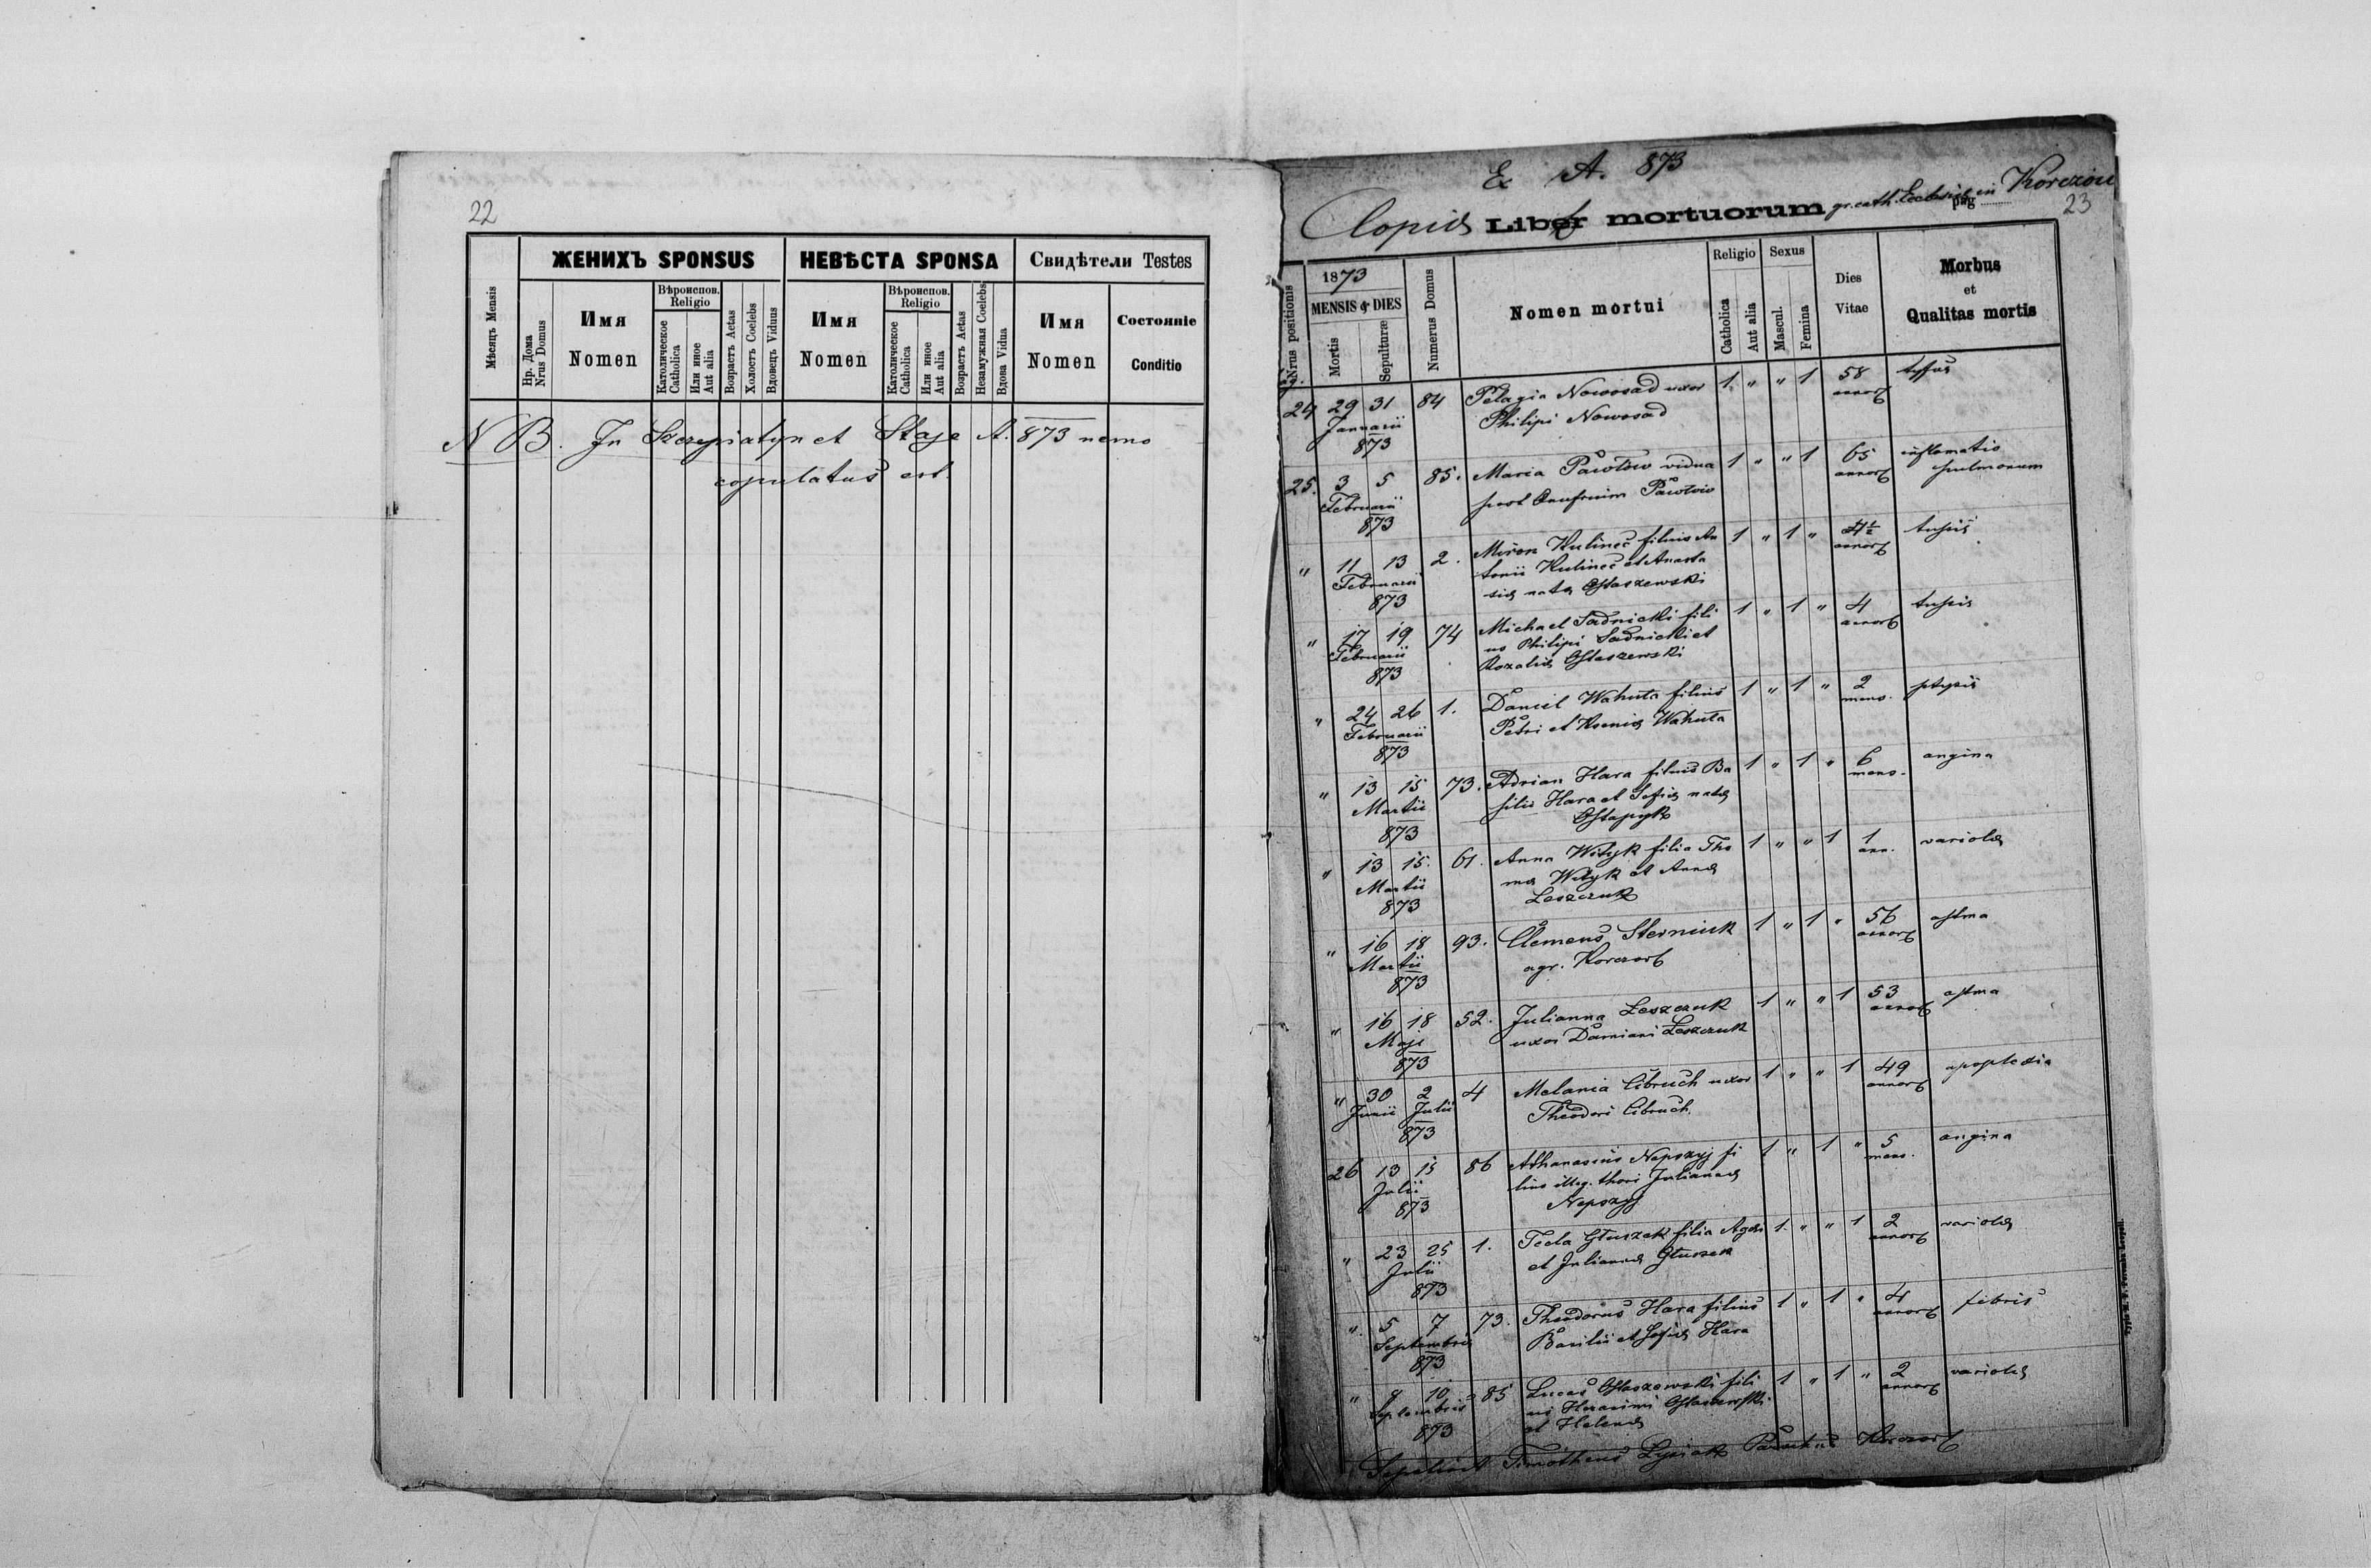 22
Мѣсяцъ Mensis
ЖЕНИХЪ SPONSUS
НЕВѢСТА SPONSA
Свидѣтели Testes
Нр. Дома Nrus Domus
Имя Nomen
Вѣроиспов. Religio
Католическое Catholica
Или иное Aut alia
Возрастъ Aetas
Холостъ Coelebs
Вдовецъ Viduus
Имя Nomen
Вѣроиспов. Religio
Католическое Catholica
Или иное Aut alia
Возрастъ Aetas
Незамужная Coelebs
Вдова Vidua
Имя Nomen
Состояніе Conditio
NB. In Szczepiatyn et Staje A. 873 nemo
copulatus est.
Ex A. 873
Copia Liber mortuorum gr. cath. Ecclesiae in Korczów
pag 23
Nrus positionis
1873
MENSIS & DIES
Mortis
Sepulturæ
Numerus Domus
Nomen mortui
Religio
Catholica
Aut alia
Sexus
Mascul.
Femina
Dies Vitae
Morbus et Qualitas mortis
24 29 31 84 Pelagia Nowosad uxor 1 " " 1 58 tyfus
Januarii Philipi Nowosad annor
873
25. 3 5 85. Maria Pawłow vidua 1 " " 1 65 inflamatio
Februarii post Onufrium Pawłow annor pulmonum
873
" 11 13 2. Miron Kulinec filius An 1 " 1 " 4½ tussis
Februarii tonii Kulinec et Anasta annor
873 siae nata Ostaszewski
" 17 19 74 Michael Sadnicki fili 1 " 1 " 4 tussis
Februarii us Philipi Sadnicki et annor
873 Rozalia Ostaszewski
" 24 26 1. Daniel Wahuta filius 1 " 1 " 2
Februarii Petri et Ksenia Wahuta mens.
873
" 13 15 73. Adrian Hara filius Ba 1 " 1 " 6 angina
Martii silii Hara et Sofia nata mens.
873 Ostapyk
" 13 15. 61. Anna Wityk filia Tho 1 " " 1 1 variola
Martii ma Wityk et Anna ann.
873 Leszczuk
" 16 18 93. Clemens Sterniuk 1 " 1 " 56 astma
Martii agr. Korczow annor
873
" 16 18 52. Julianna Leszczuk 1 " " 1 53 astma
Maji uxor Damiani Leszczuk annor
873
" 30 2 4 Melania Cibruch uxor 1 " " 1 49 apoplexia
Junii Julii Theodori Cibruch annor
873
26 13 15 86 Athanasius Nepszyj fi 1 " 1 " 5 angina
Julii lius illeg. thori Julianna mens.
873 Nepszyj
" 23 25 1. Tecla Głuszek filia 1. " " 1 2 variola
Julii et Julianna Głuszek annor
873
". 5 7 73. Theodorus Hara filius 1 " 1 " 4 febris
Septembris Basilii et Sofia Hara annor
873
" 10 85 Lucas Ostaszewski fili 1 " 1 " 2 variola
Septembris us Ostaszewski annor
873 et Helena
Sepelivit Timotheus Parochus Korczow
Typis M. F. Poremba Leopoli.